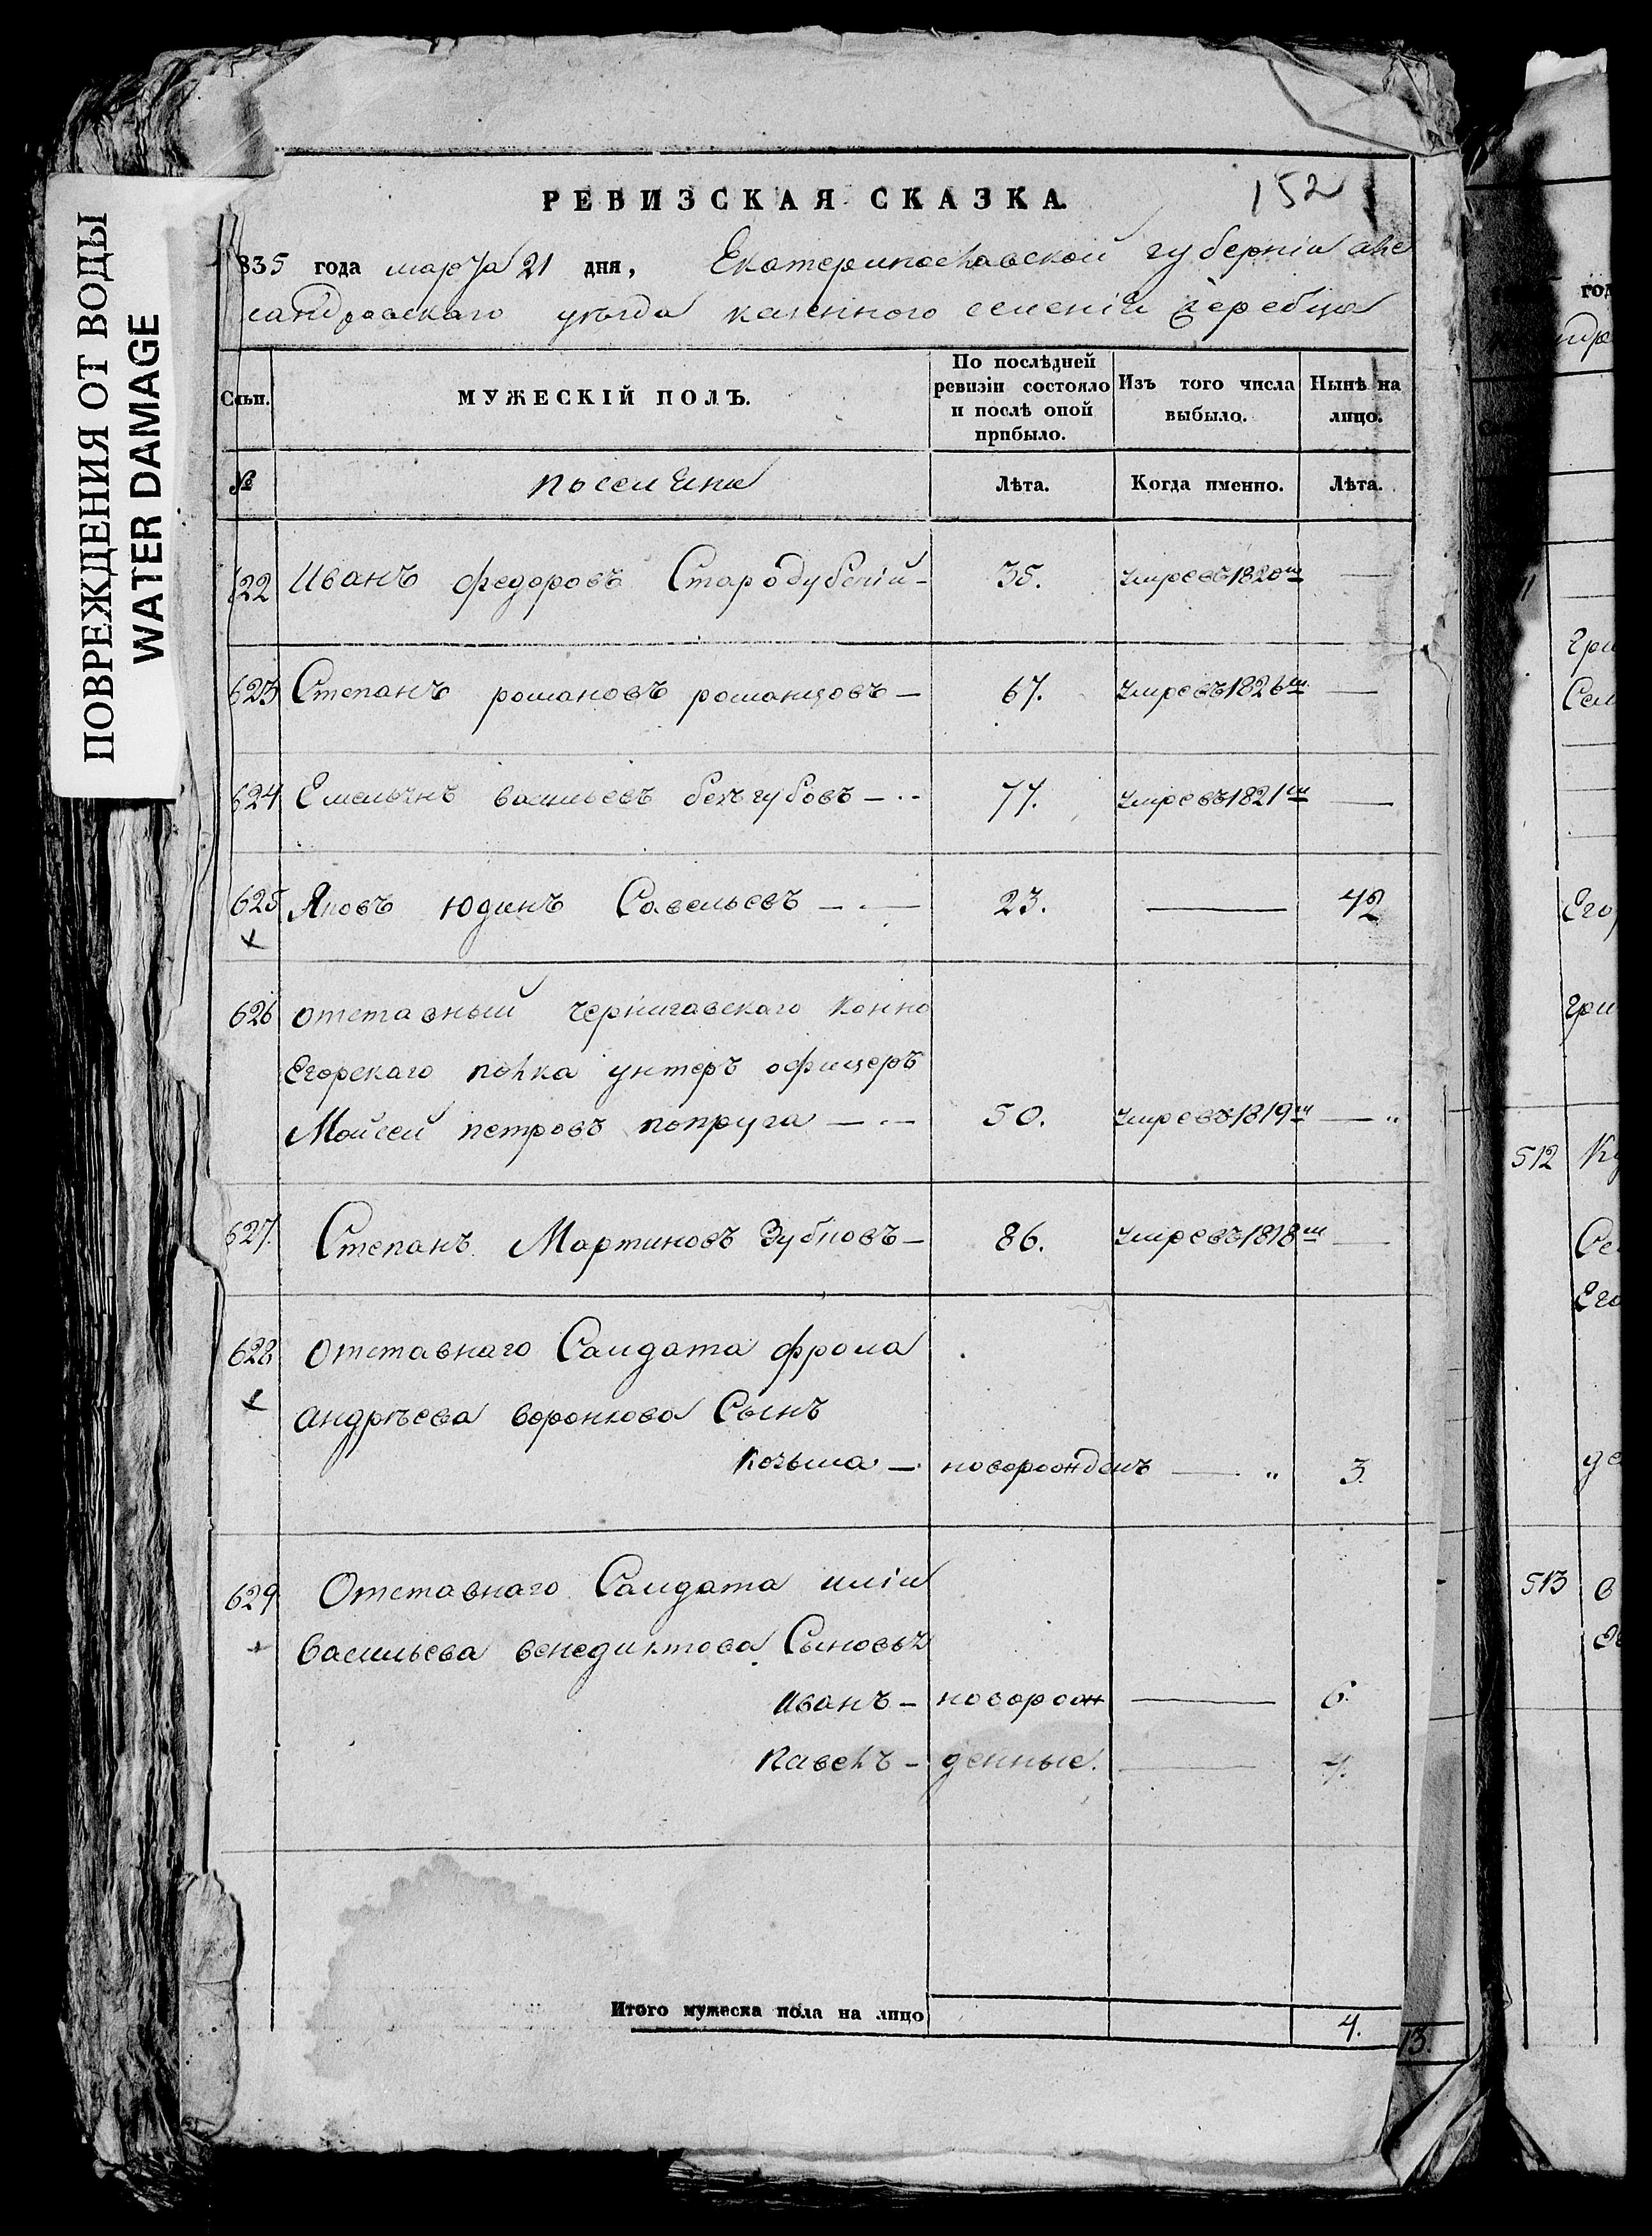 ПОВРЕЖДЕНИЯ ОТ ВОДЫ
WATER DAMAGE
РЕВИЗСКАЯ СКАЗКА. 152
835 года марта 21 дня, Екатеринославской губерніи алек
сандровскаго уѣзда казенного селенія Жеребца
Сѣм. МУЖЕСКІЙ ПОЛЪ. По послѣдней ревизіи состояло и послѣ оной прибыло. Изъ того числа выбыло. Нынѣ на лицо.
№ Лѣта. Когда именно. Лѣта.
622 Иванъ федоровъ Стародубскій 35. умре въ 1820м —
623 Степанъ романовъ романцовъ — 67. умре въ 1826м —
624 Емельянъ васильевъ безгубовъ — 77. умре въ 1821м —
625 Яковъ Юдинъ Савельевъ — 23. — 42
626 отставный черниговскаго конно
Егорскаго полка унтеръ офицеръ
Мойсей петровъ попруга — 50. умре въ 1819м —
627. Степанъ Мартиновъ Зубковъ — 86. умре въ 1818м —
628 отставнаго Салдата фрола
андрѣева воронкова Сынъ
козьма — новорожденъ — „ 3.
629 Отставнаго Салдата иліи
васильева венедиктова Сыновья
иванъ — новорож — 6.
павелъ — денные. — 4.
Итого мужеска пола на лицо 4.
13.
512
513